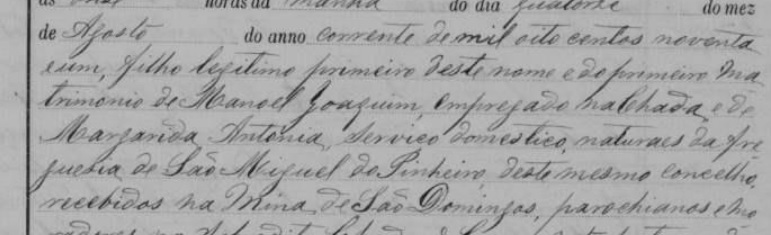 as onze horas da manhã do dia quatorze do mez
de Agosto do anno corrente de mil oito centos noventa
e um, filho legitimo primeiro deste nome e do primeiro ma
trimonio de Manoel Joaquim, empregado na Chada, e de
Margarida Antonia, serviço domestico, naturaes da fre
guesia de São Miguel do Pinheiro, deste mesmo concelho,
recebidos na Mina de São Domingos, parochianos e mo
radores